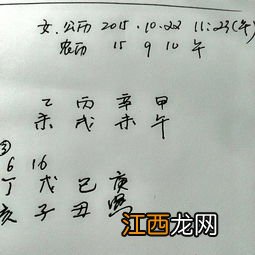 女. 公历 2015. 10. 22 11:23(午)
农历 15 9 10 午
乙 丙 辛 甲
未 戌 未 午
③
6 16
丁 戊 己 庚
亥 子 丑 寅
江西龙网